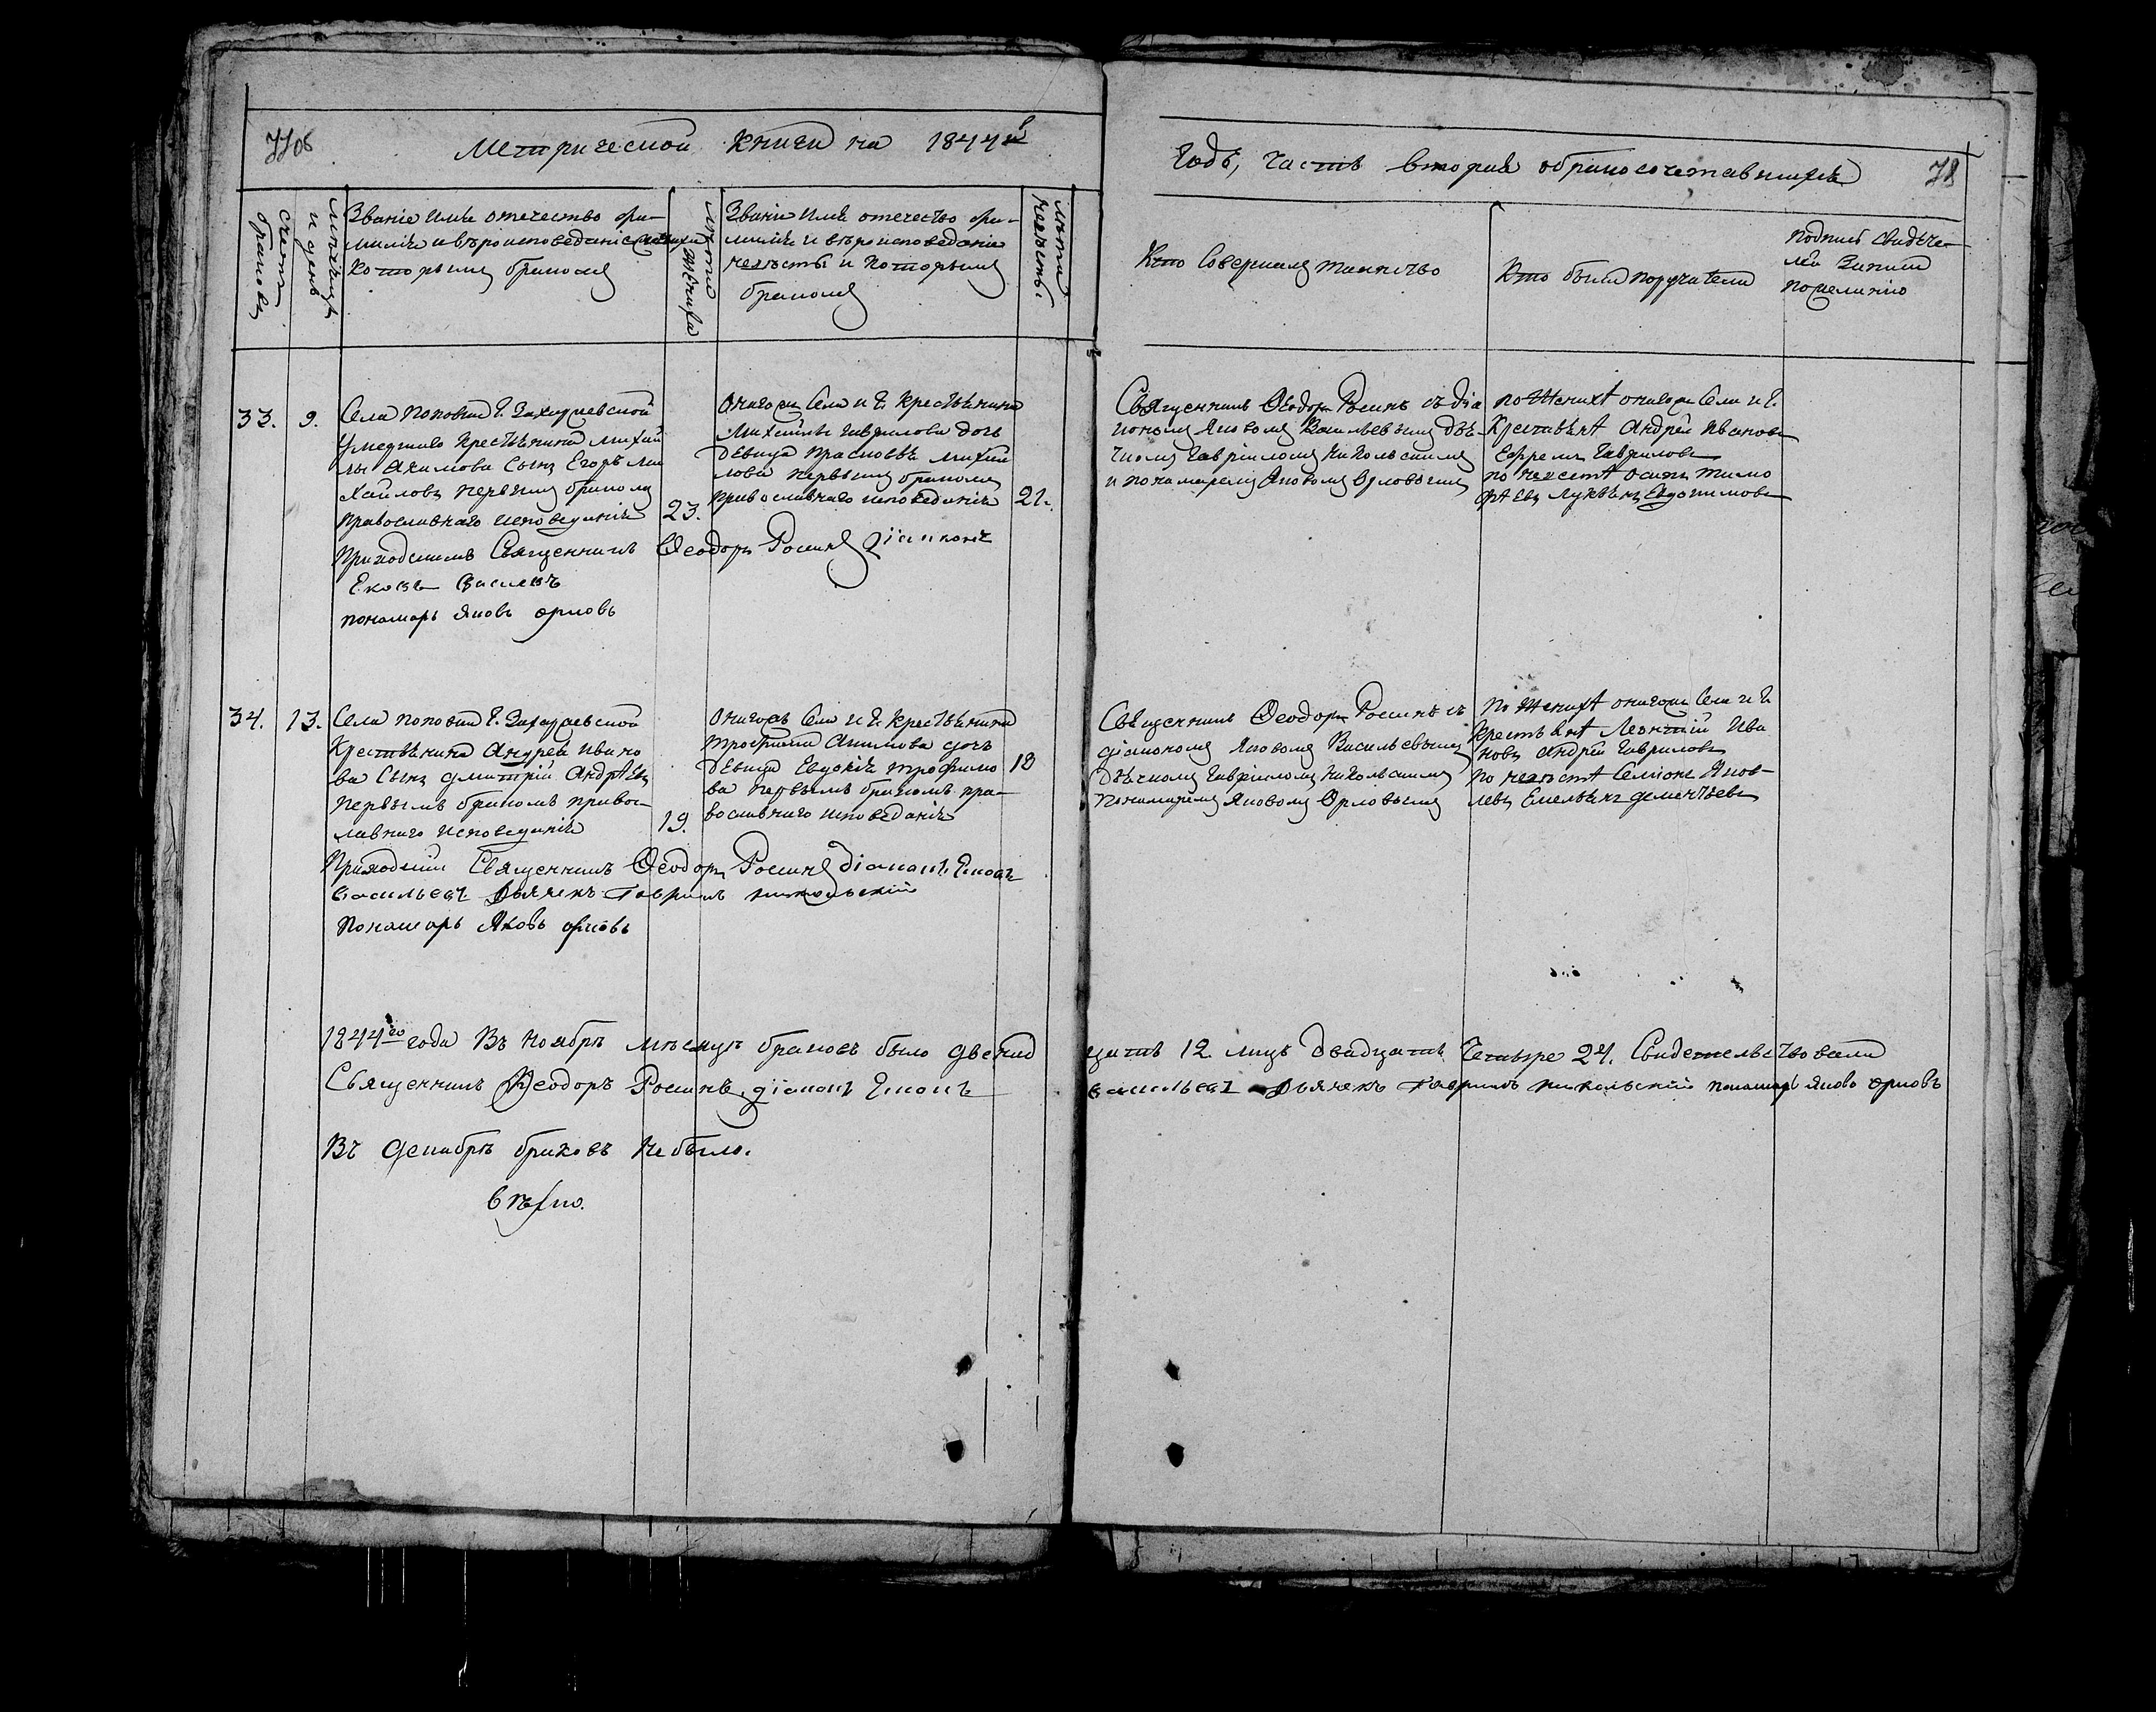 Метрической книги на 1844й
Годъ, часть вторая о бракосочетавшихся
78
счетъ браковъ
мѣсяцъ и день
Званіе имя отечество фа-
миліе и вѣроисповеданіе жениха
которымъ бракомъ
лѣта жениха
Званіе имя отечество фа-
миліе и вѣроисповеданіе
невѣсты и которымъ
бракомъ
лѣта невѣсты
Кто совершалъ таинство
Кто были поручители
подпись свидѣте-
лей записи
по желанію
33.
9.
Села Поповки Г. Захаріевской
умершаго крестьянина Михай
лы Акимова сынъ Егоръ Ми
хайловъ первымъ бракомъ
православнаго исповеданія
23.
Онагожъ села и Г. крестьянина
Михайлы Гаврилова дочь
девица Прасковья Михай
лова первымъ бракомъ
православнаго исповеданія
21.
Священникъ Феодоръ Росинъ съ діа
кономъ Яковомъ Васильевымъ дья-
чкомъ Гавріиломъ Никольскимъ
и понамаремъ Яковомъ Орловымъ
по женихѣ онагожъ села и Г.
крестьянѣ Андрей Ивановъ
Ефремъ Гавриловъ
по невестѣ Осипъ Тимо
фѣевъ Лукьянъ Евдокимовъ
Приходскій Священникъ Феодоръ Росинъ діаконъ
Ековъ Василевъ
пономарь Яковъ Орловъ
34.
13.
Села Поповки Г. Захаріевской
крестьянина Андрея Ивано
ва сынъ Дмитрій Андрѣевъ
первымъ бракомъ правос-
лавнаго исповеданія
19.
Онагожъ села и Г. крестьянина
Трофима Акимова дочь
девица Евдокія Трофимо
ва первымъ бракомъ пра-
вославнаго исповеданія
18
Священникъ Феодоръ Росинъ съ
діакономъ Яковомъ Васильевымъ
дьячкомъ Гавріиломъ Никольскимъ
понамаремъ Яковомъ Орловымъ
по женихѣ онагожъ села и Г.
крестьянѣ Леонтій Ива
новъ Андрей Гавриловъ
по невестѣ Семіонъ Яков-
левъ Емельянъ Дементьевъ
Приходскій Священникъ Феодоръ Росинъ діаконъ Ековъ
Васильевъ Дьячекъ Гаврилъ Никольский
Пономарь Яковъ Орловъ
1844го года Въ Ноябрѣ мѣсяцѣ браковъ было двенад
цать 12 лицъ двадцать четыре 24. Свидетельствовали
Священникъ Феодоръ Росинъ, діаконъ Ековъ
Васильевъ Дьячекъ Гаврилъ Никольский пономарь Яковъ Орловъ
Въ Декабрѣ браковъ не было.